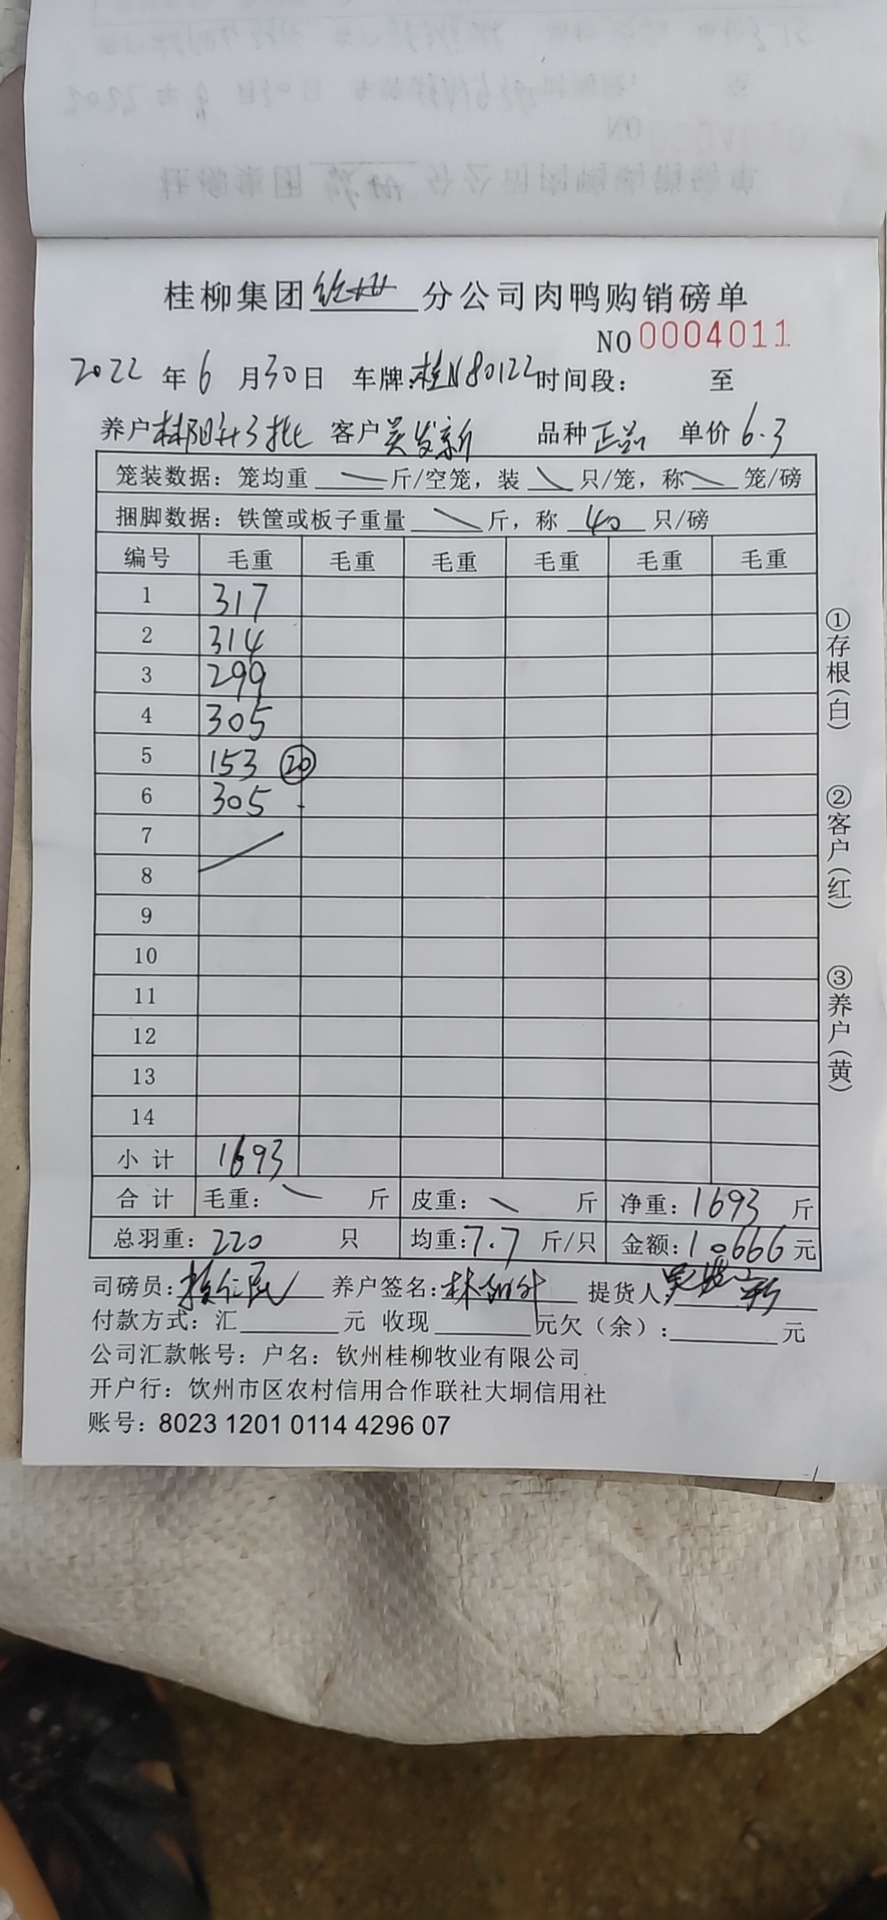 桂柳集团钦州分公司肉鸭购销磅单
NO 0004011
2022年6月30日 车牌:桂N80122时间段: 至
养户林阳升3批 客户吴发新 品种正品 单价6.3
笼装数据:笼均重 斤/空笼,装 只/笼,称 笼/磅
捆脚数据:铁筐或板子重量 斤,称 40 只/磅
编号 毛重 毛重 毛重 毛重 毛重 毛重
1 317
2 314
3 299
4 305
5 153 ⑳
6 305
7
8
9
10
11
12
13
14
小计 1693
合计 毛重: 斤 皮重: 斤 净重:1693斤
总羽重:220 只 均重:7.7 斤/只 金额:10666元
司磅员: 养户签名: 提货人
付款方式:汇 元 收现 元欠(余): 元
公司汇款帐号:户名:钦州桂柳牧业有限公司
开户行:饮州市区农村信用合作联社大垌信用社
账号:8023 1201 0114 4296 07
①存根(白)
②客户(红)
③养户(黄)